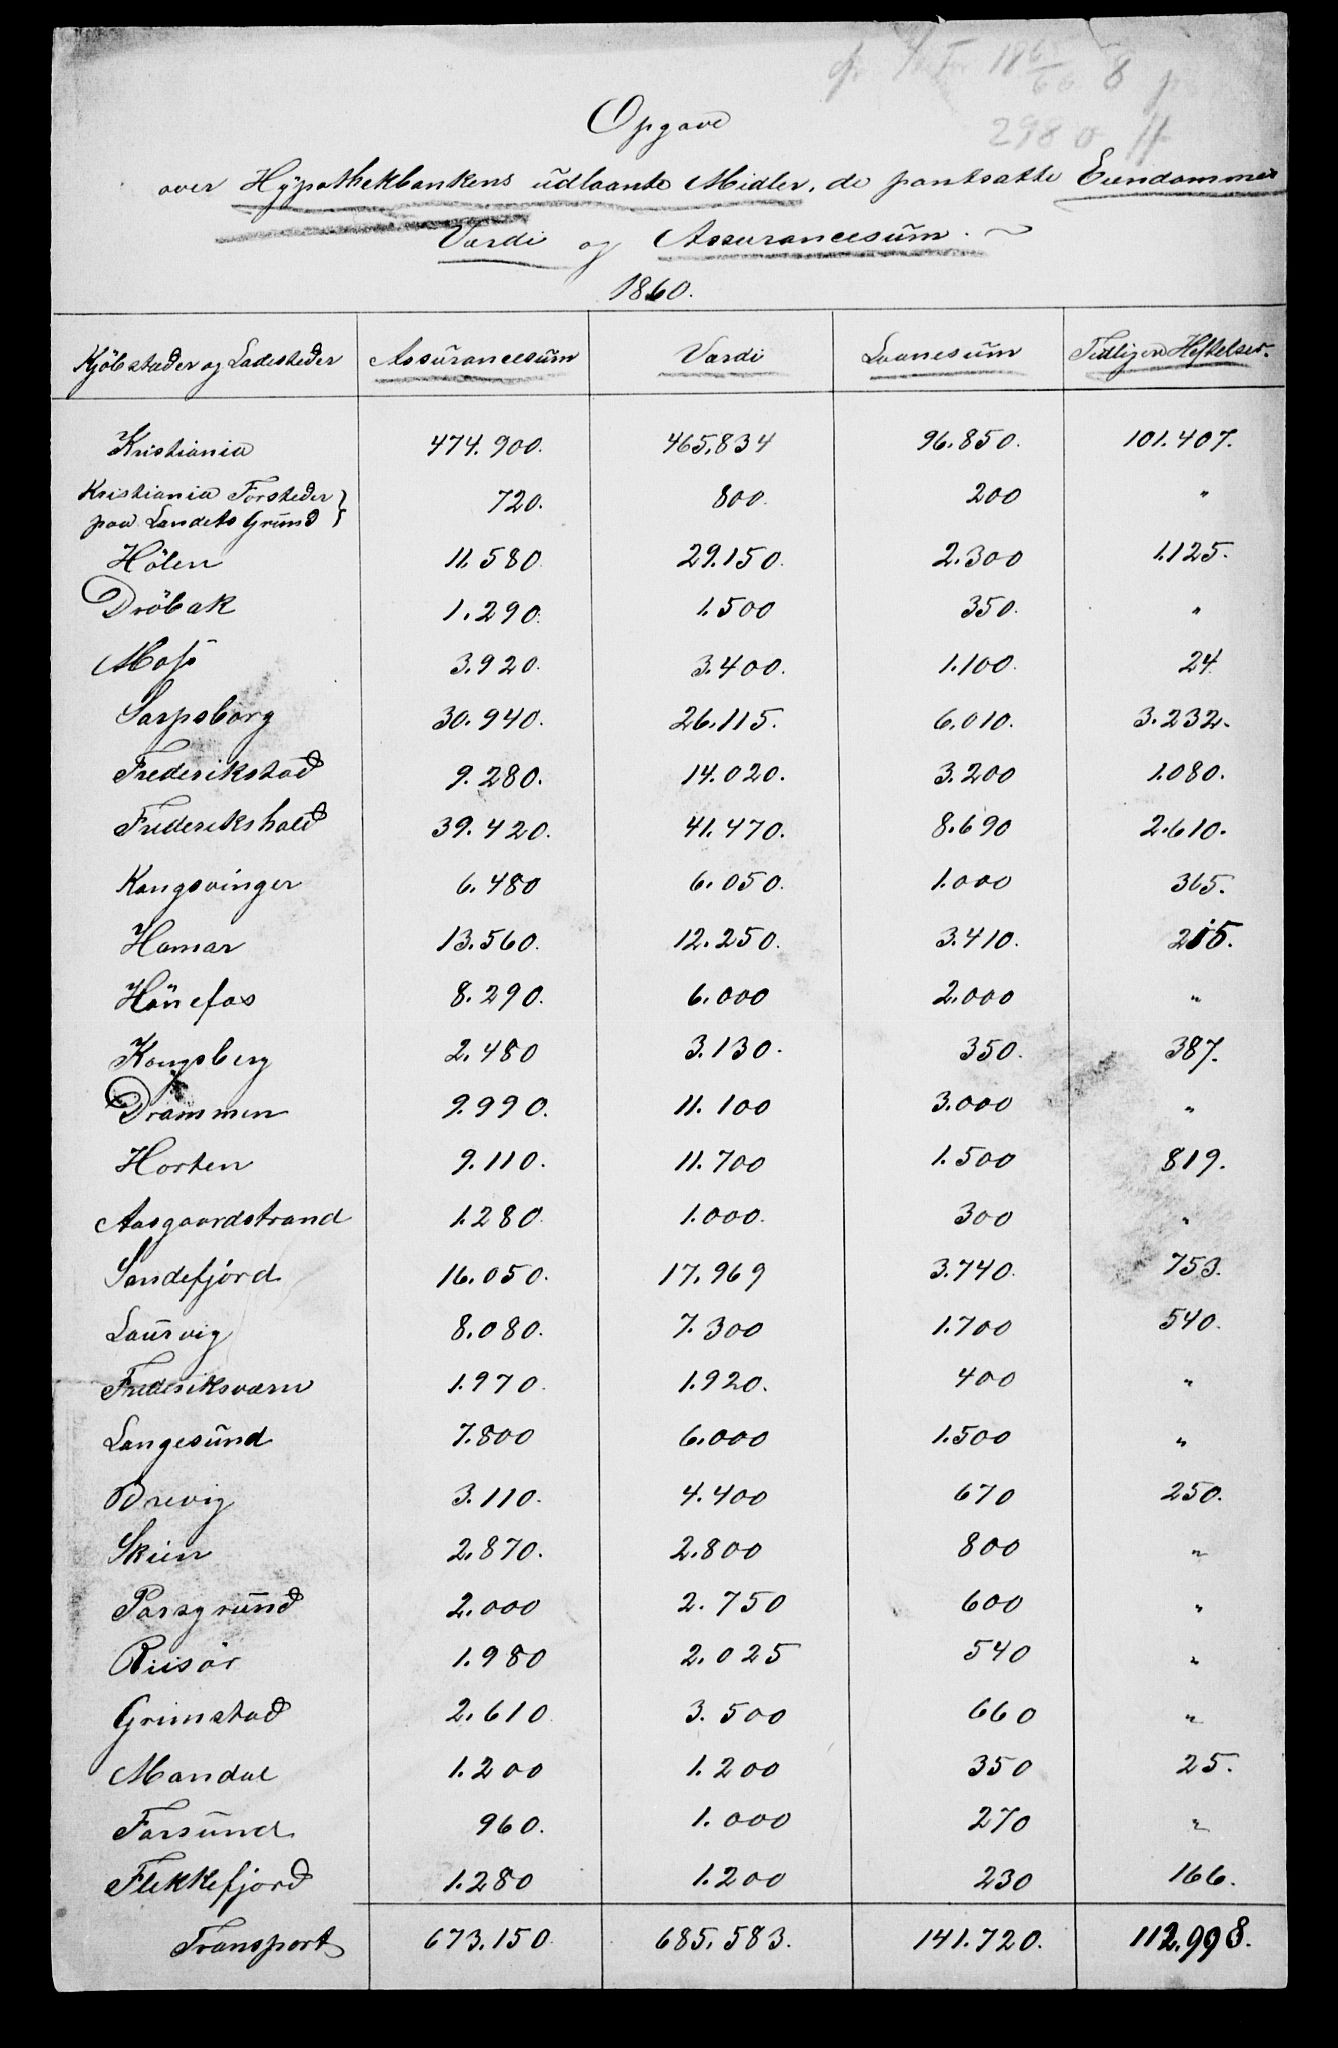 298
Opgave
over Hypothekbankens udlaante Midler, de pantsatte Eiendommes
Værdi og Assurancesum.
1860.
Kjöbstæder og Ladesteder Assurancesum Værdi Laanesum Tidligere Heftelser.
Kristiania 474.900. 465.834 96.850. 101.407.
Kristiania Forsteder
paa Landets Grund } 720. 800. 200 "
Hölen 11.580. 29.150. 2.300 1.125.
Dröbak 1.290. 1.500 350. "
Moss 3.920. 3.400. 1.100. 24
Sarpsborg 30.940. 26.115. 6.010. 3.232.
Frederikstad 9.280. 14.020. 3.200 1.080.
Frederikshald 39.420. 41.470. 8.690 2.610.
Kongsvinger 6.480 6.050. 1.000 365.
Hamar 13.560. 12.250. 3.410. 215.
Hönefos 8.290. 6.000 2.000 "
Kongsberg 2.480 3.130. 350. 387.
Drammen 9.990. 11.100 3.000 "
Horten 9.110. 11.700 1.500 819.
Aasgaardstrand 1.280. 1.000. 300 "
Sandefjord 16.050. 17.969 3.740. 753.
Laurvig 8.080. 7.300 1.700 540.
Frederiksværn 1.970. 1.920. 400 "
Langesund 7.800 6.000 1.500 "
Brevig 3.110. 4.400 670 250.
Skien 2.870. 2.800 800 "
Porsgrund 2.000 2.750 600 "
Riisör 1.980 2.025 540 "
Grimstad 2.610 3.500 660 "
Mandal 1.200 1.200 350 25.
Farsund 960. 1.000 270 "
Flekkefjord 1.280 1.200 230 166.
Transport 673.150. 685.583. 141.720. 112.998.